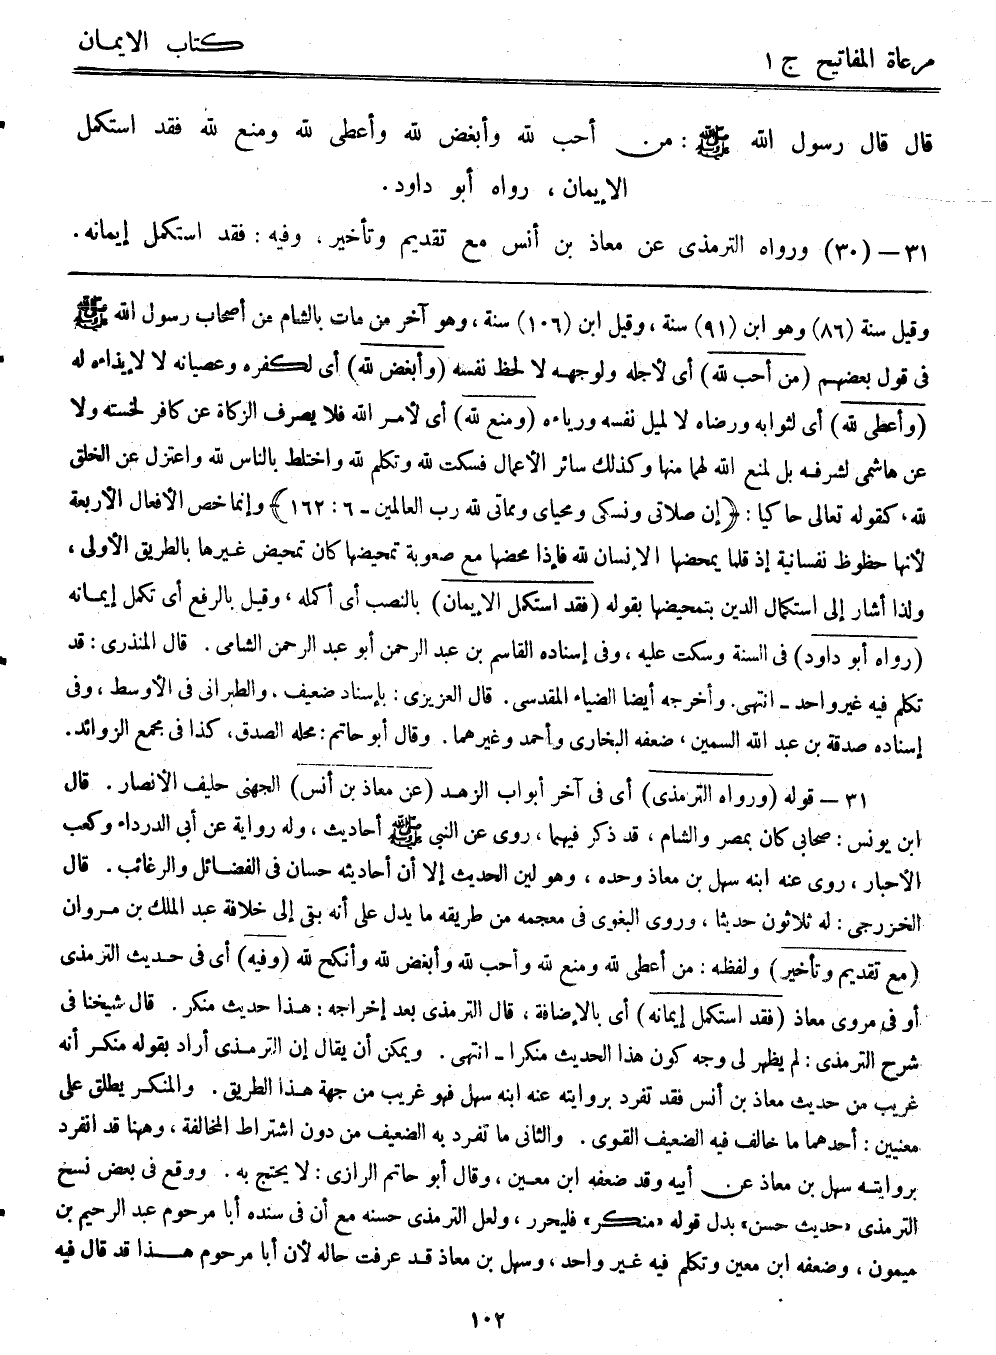 مرعاة المفاتيح ج ١
كتاب الايمان
قال قال رسول الله ﷺ : من أحب لله وأبغض لله وأعطى لله ومنع لله فقد استكمل
الإيمان ، رواه أبو داود .
٣١ – (٣٠) ورواه الترمذى عن معاذ بن أنس مع تقديم وتأخير ، وفيه : فقد استكمل إيمانه .
وقيل سنة (٨٦) وهو ابن (٩١) سنة ، وقيل ابن (١٠٦) سنة ، وهو آخر من مات بالشام من أصحاب رسول الله ﷺ
فى قول بعضهم (من أحب لله) أى لأجله ولوجهه لا لحظ نفسه (وأبغض لله) أى لكفره وعصيانه لا لإيذاءه له
(وأعطى لله) أى لثوابه ورضاه لا لميل نفسه ورياءه (ومنع لله) أى لأمر الله فلا يصرف الزكاة عن كافر لخسته ولا
عن هاشمى لشرفه بل لمنع الله لهما منها وكذلك سائر الأعمال فسكت لله وتكلم لله واختلط بالناس لله واعتزل عن الخلق
لله ، كقوله تعالى حاكيا : ﴿إن صلاتى ونسكى ومحياى ومماتى لله رب العالمين – ٦ : ١٦٢﴾ وإنما خص الأفعال الأربعة
لأنها حظوظ نفسانية إذ قلما يمحضها الإنسان لله فإذا محضها مع صعوبة تمحيضها كان تمحيض غيرها بالطريق الأولى ،
ولذا أشار إلى استكمال الدين بتمحيضها بقوله (فقد استكمل الإيمان) بالنصب أى أكمله ، وقيل بالرفع أى تكمل إيمانه
(رواه أبو داود) فى السنة وسكت عليه ، وفى إسناده القاسم بن عبد الرحمن أبو عبد الرحمن الشامى . قال المنذرى : قد
تكلم فيه غير واحد – انتهى . وأخرجه أيضا الضياء المقدسى . قال العزيزى : بإسناد ضعيف . والطبرانى فى الأوسط ، وفى
إسناده صدقة بن عبد الله السمين ، ضعفه البخارى وأحمد وغيرهما . وقال أبو حاتم : محله الصدق ، كذا فى مجمع الزوائد .
٣١ – قوله (ورواه الترمذى) أى فى آخر أبواب الزهد (عن معاذ بن أنس) الجهنى حليف الأنصار . قال
ابن يونس : صحابى كان بمصر والشام ، قد ذكر فيهما ، روى عن النبى ﷺ أحاديث ، وله رواية عن أبى الدرداء وكعب
الأحبار ، روى عنه ابنه سهل بن معاذ وحده ، وهو لين الحديث إلا أن أحاديثه حسان فى الفضائل والرغائب . قال
الخزرجى : له ثلاثون حديثا ، وروى البغوى فى معجمه من طريقه ما يدل على أنه بقى إلى خلافة عبد الملك بن مروان
(مع تقديم وتأخير) ولفظه : من أعطى لله ومنع لله وأحب لله وأبغض لله وأنكح لله (وفيه) أى فى حديث الترمذى
أو فى مروى معاذ (فقد استكمل إيمانه) أى بالإضافة ، قال الترمذى بعد إخراجه : هذا حديث منكر . قال شيخنا فى
شرح الترمذى : لم يظهر لى وجه كون هذا الحديث منكرا – انتهى . ويمكن أن يقال إن الترمذى أراد بقوله منكر أنه
غريب من حديث معاذ بن أنس فقد تفرد بروايته عنه ابنه سهل فهو غريب من جهة هذا الطريق . والمنكر يطلق على
معنيين : أحدهما ما خالف فيه الضعيف القوى . والثانى ما تفرد به الضعيف من دون اشتراط المخالفة ، وههنا قد انفرد
بروايته سهل بن معاذ عن أبيه وقد ضعفه ابن معين ، وقال أبو حاتم الرازى : لا يحتج به . ووقع فى بعض نسخ
الترمذى «حديث حسن» بدل قوله «منكر» فليحرر ، ولعل الترمذى حسنه مع أن فى سنده أبا مرحوم عبد الرحيم بن
ميمون ، وضعفه ابن معين وتكلم فيه غير واحد ، وسهل بن معاذ قد عرفت حاله لأن أبا مرحوم هذا قد قال فيه
١٠٢